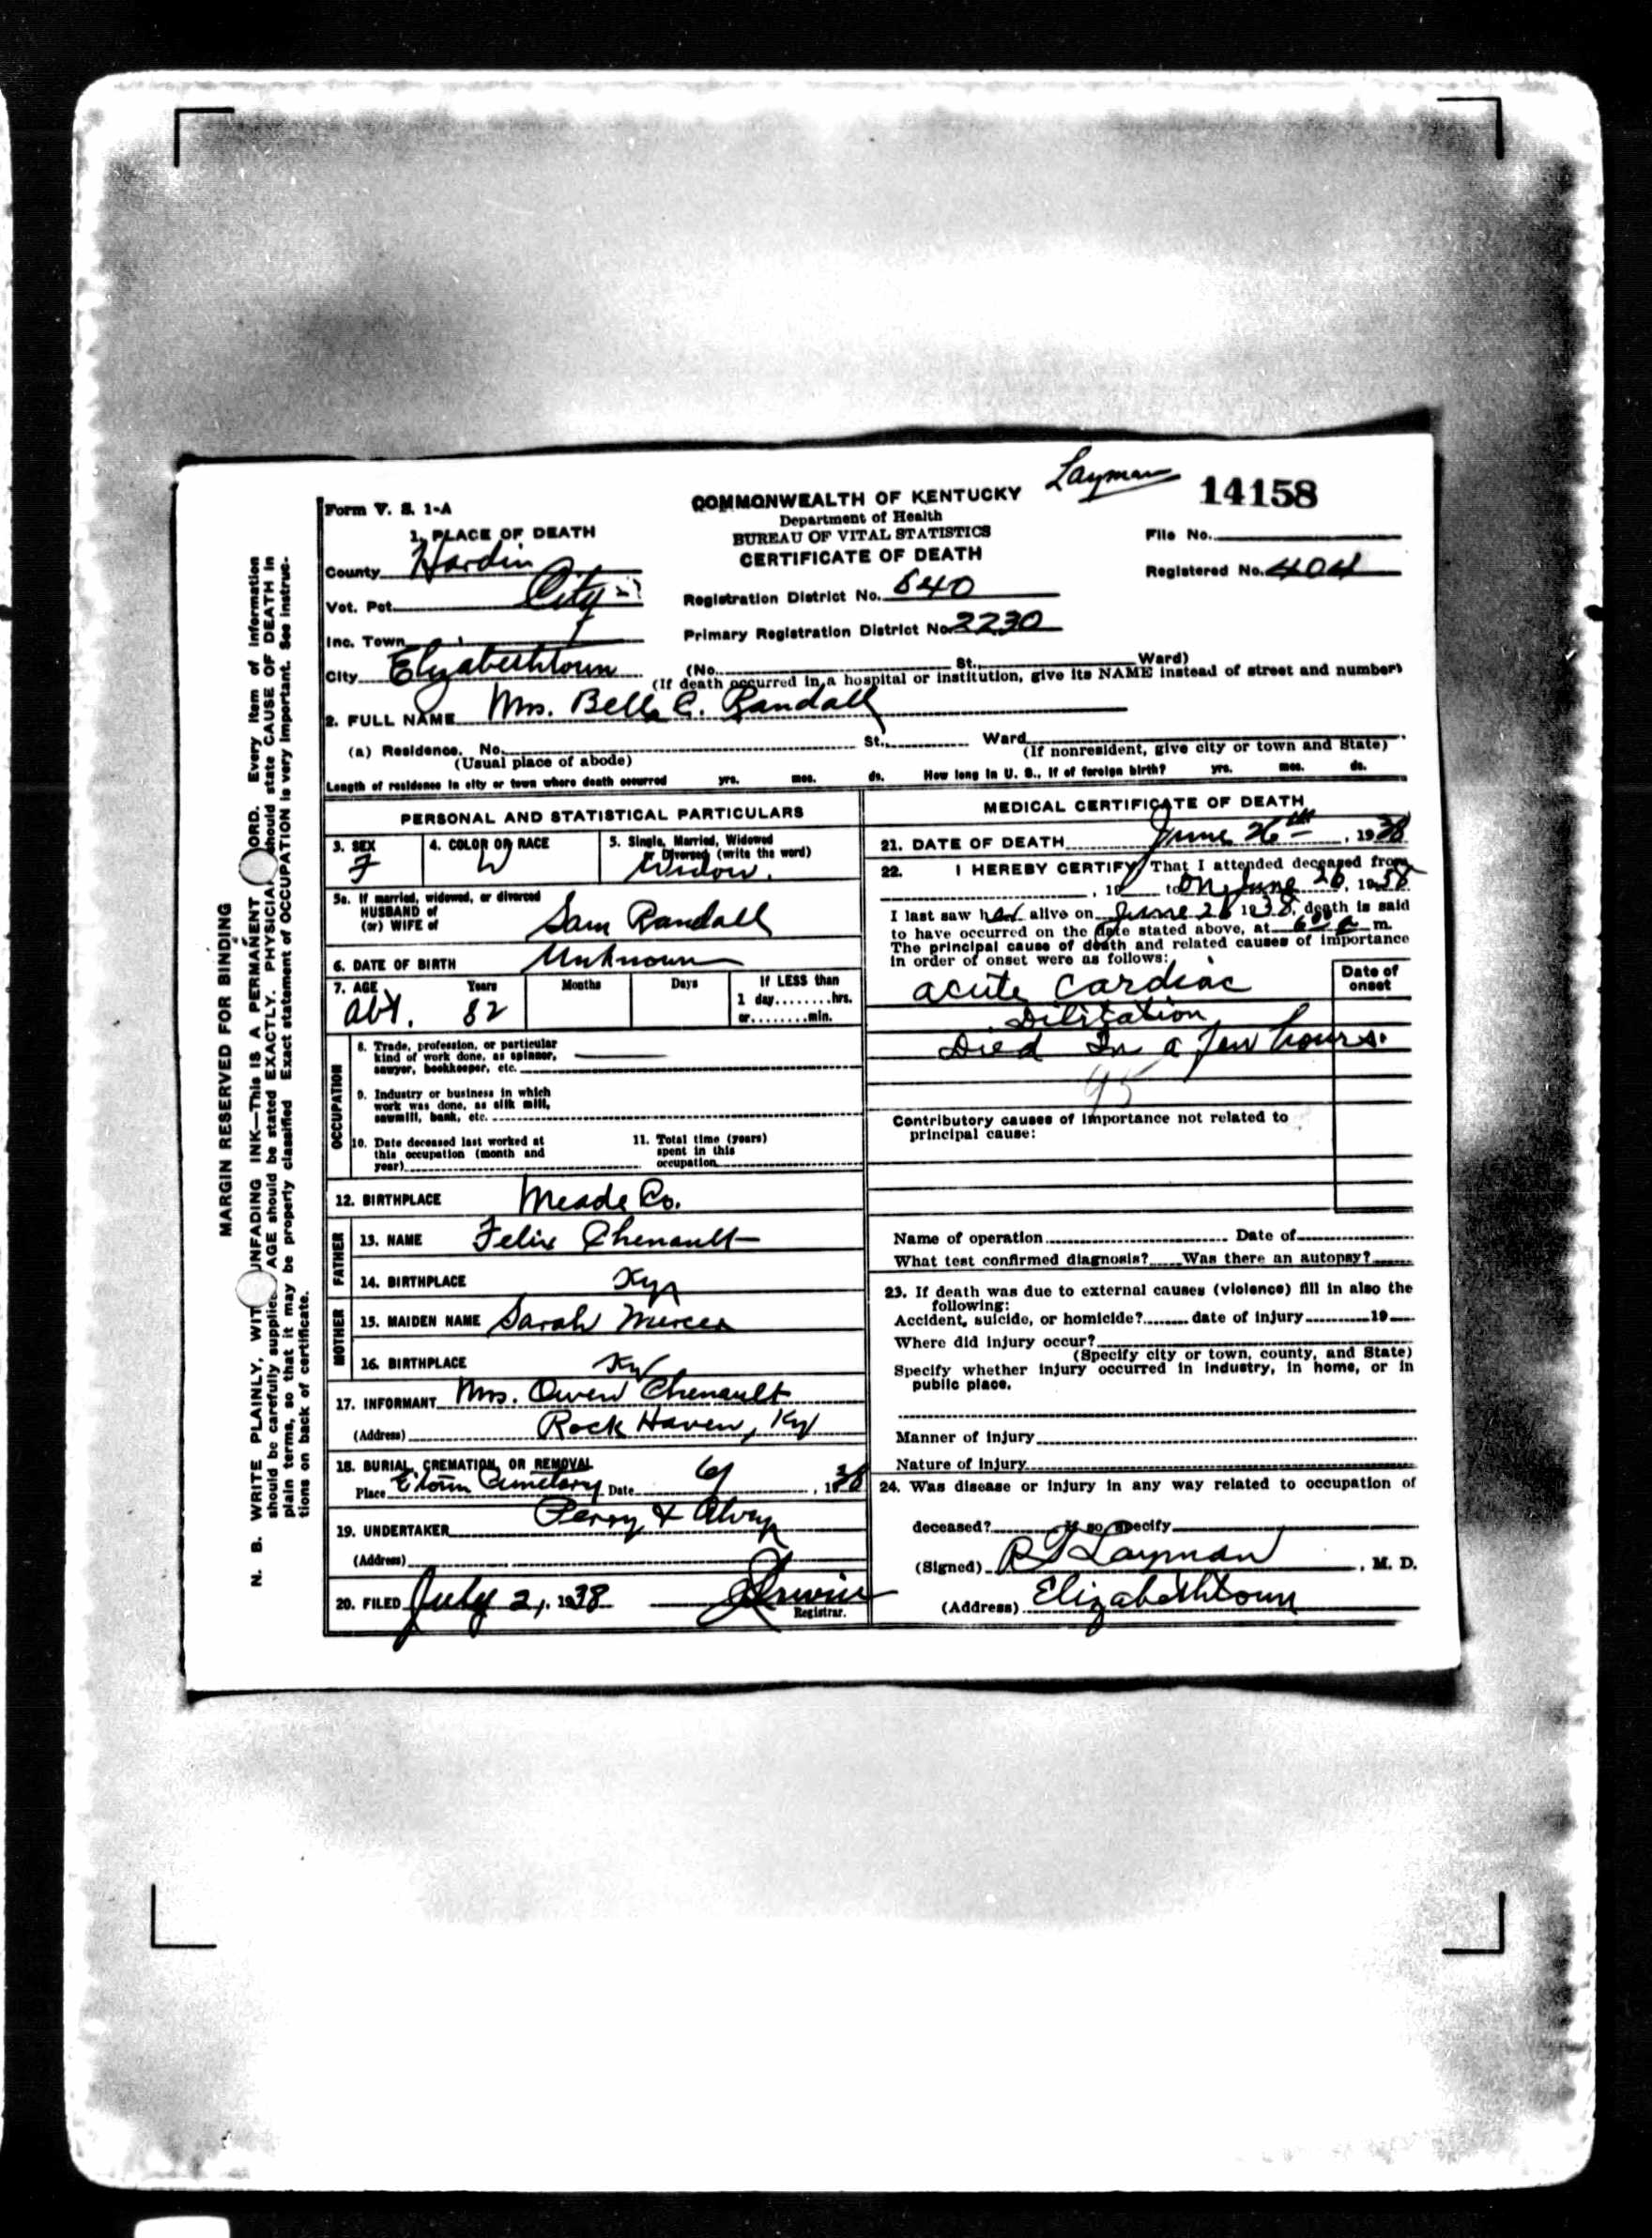 Layman
14158
Form V. S. 1-A
COMMONWEALTH OF KENTUCKY
Department of Health
BUREAU OF VITAL STATISTICS
CERTIFICATE OF DEATH
File No.
Registered No. 404
1. PLACE OF DEATH
County Hardin
Vot. Pct. City
Registration District No. 540
Inc. Town
Primary Registration District No. 2230
City Elizabethtown (No. St., Ward)
(If death occurred in a hospital or institution, give its NAME instead of street and number)
2. FULL NAME Mrs. Belle C. Randall
(a) Residence. No. St., Ward
(Usual place of abode) (If nonresident, give city or town and State)
Length of residence in city or town where death occurred yrs. mos. ds. How long in U. S., if of foreign birth? yrs. mos. ds.
PERSONAL AND STATISTICAL PARTICULARS
3. SEX 4. COLOR OR RACE 5. Single, Married, Widowed
or Divorced (write the word)
F W Widow.
5a. If married, widowed, or divorced
HUSBAND of
(or) WIFE of Sam Randall
6. DATE OF BIRTH Unknown
7. AGE Years Months Days If LESS than
1 day........hrs.
or........min.
abt. 82
OCCUPATION
8. Trade, profession, or particular
kind of work done, as spinner,
sawyer, bookkeeper, etc.
9. Industry or business in which
work was done, as silk mill,
sawmill, bank, etc.
10. Date deceased last worked at
this occupation (month and
year)
11. Total time (years)
spent in this
occupation
12. BIRTHPLACE Meade Co.
FATHER
13. NAME Felix Chenault
14. BIRTHPLACE Ky
MOTHER
15. MAIDEN NAME Sarah Mercer
16. BIRTHPLACE Ky
17. INFORMANT Mrs. Owen Chenault
(Address) Rock Haven, Ky
18. BURIAL, CREMATION, OR REMOVAL
Place E'town Cemetary Date 6/ , 1938
19. UNDERTAKER Perry & Alvey
(Address)
20. FILED July 2, 1938 Irwin
Registrar.
MEDICAL CERTIFICATE OF DEATH
21. DATE OF DEATH June 26th , 1938
22. I HEREBY CERTIFY, That I attended deceased from
, 19 to on June 26, 1938
I last saw her alive on June 26 1938, death is said
to have occurred on the date stated above, at m.
The principal cause of death and related causes of importance
in order of onset were as follows:
Date of
onset
acute cardiac
Dilitation
Died In a few hours.
95
Contributory causes of importance not related to
principal cause:
Name of operation Date of
What test confirmed diagnosis? Was there an autopsy?
23. If death was due to external causes (violence) fill in also the
following:
Accident, suicide, or homicide? date of injury 19
Where did injury occur?
(Specify city or town, county, and State)
Specify whether injury occurred in industry, in home, or in
public place.
Manner of injury
Nature of injury
24. Was disease or injury in any way related to occupation of
deceased? If so, specify
(Signed) Layman, M. D.
(Address) Elizabethtown
MARGIN RESERVED FOR BINDING
N. B. WRITE PLAINLY, WITH UNFADING INK—This IS A PERMANENT RECORD. Every item of information
should be carefully supplied. AGE should be stated EXACTLY. PHYSICIANS should state CAUSE OF DEATH in
plain terms, so that it may be properly classified. Exact statement of OCCUPATION is very important. See instruc-
tions on back of certificate.